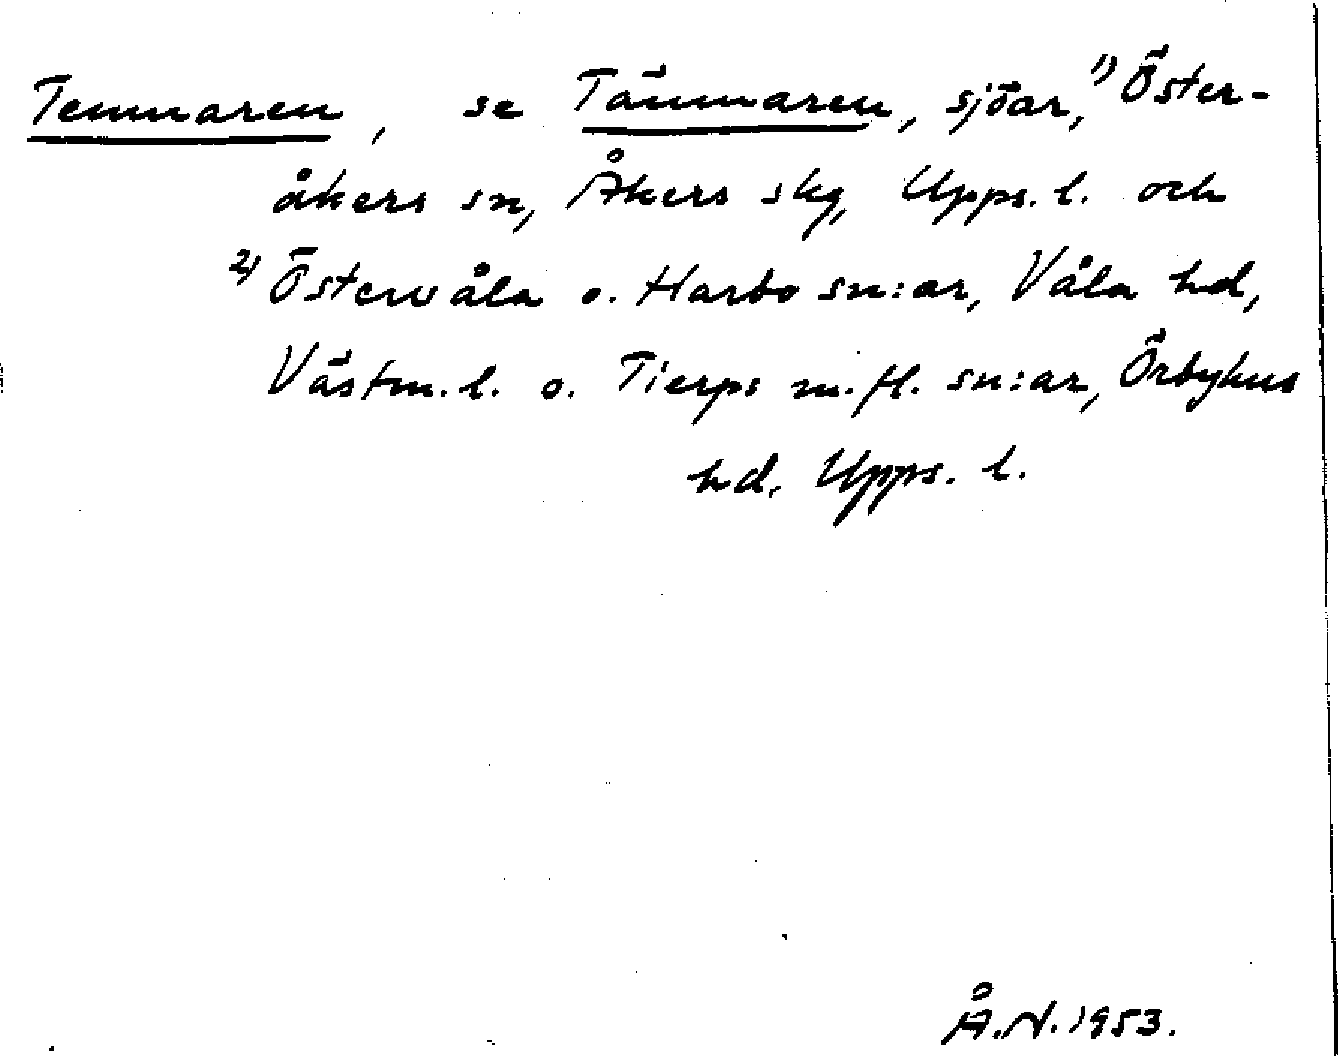 Temnaren, se Tämnaren, sjöar, 1) Öster-
åkers sn, Åkers skg, Upps. l. och
2) Östervåla o. Harbo sn:ar, Våla hd,
Västm. l. o. Tierps m. fl. sn:ar, Örbyhus
hd, Upps. l.
Å.N. 1953.